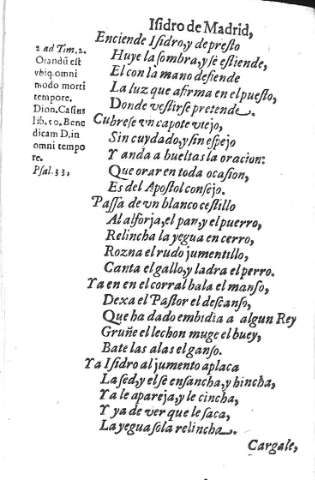 Isidro de Madrid,
2 ad Tim. 2.
Orandũ est
vbiq. omni
modo morti
tempore.
Dion. Casius
lib. 50, Bene
dicam D. in
omni tempo
re.
Psal. 33,
Enciende Isidro, y de presto
Huye la sombra, y se estiende,
El con la mano defiende
La luz que afirma en el puesto,
Donde vestirse pretende.
Cubrese vn capote viejo,
Sin cuydado, y sin espejo
Y anda a bueltas la oracion:
Que orar en toda ocasion,
Es del Apostol consejo.
Passa de vn blanco cestillo
Al alforja, el pan, y el puerro,
Relincha la yegua en cerro,
Rozna el rudo jumentillo,
Canta el gallo, y ladra el perro.
Ya en en el corral bala el manso,
Dexa el Pastor el descanso,
Que ha dado embidia a algun Rey
Gruñe el lechon muge el buey,
Bate las alas el ganso.
Ya Isidro al jumento aplaca
La sed, y el se ensancha, y hincha,
Ya le apareja, y le cincha,
Y ya de ver que le saca,
La yegua sola relincha.
Cargale,